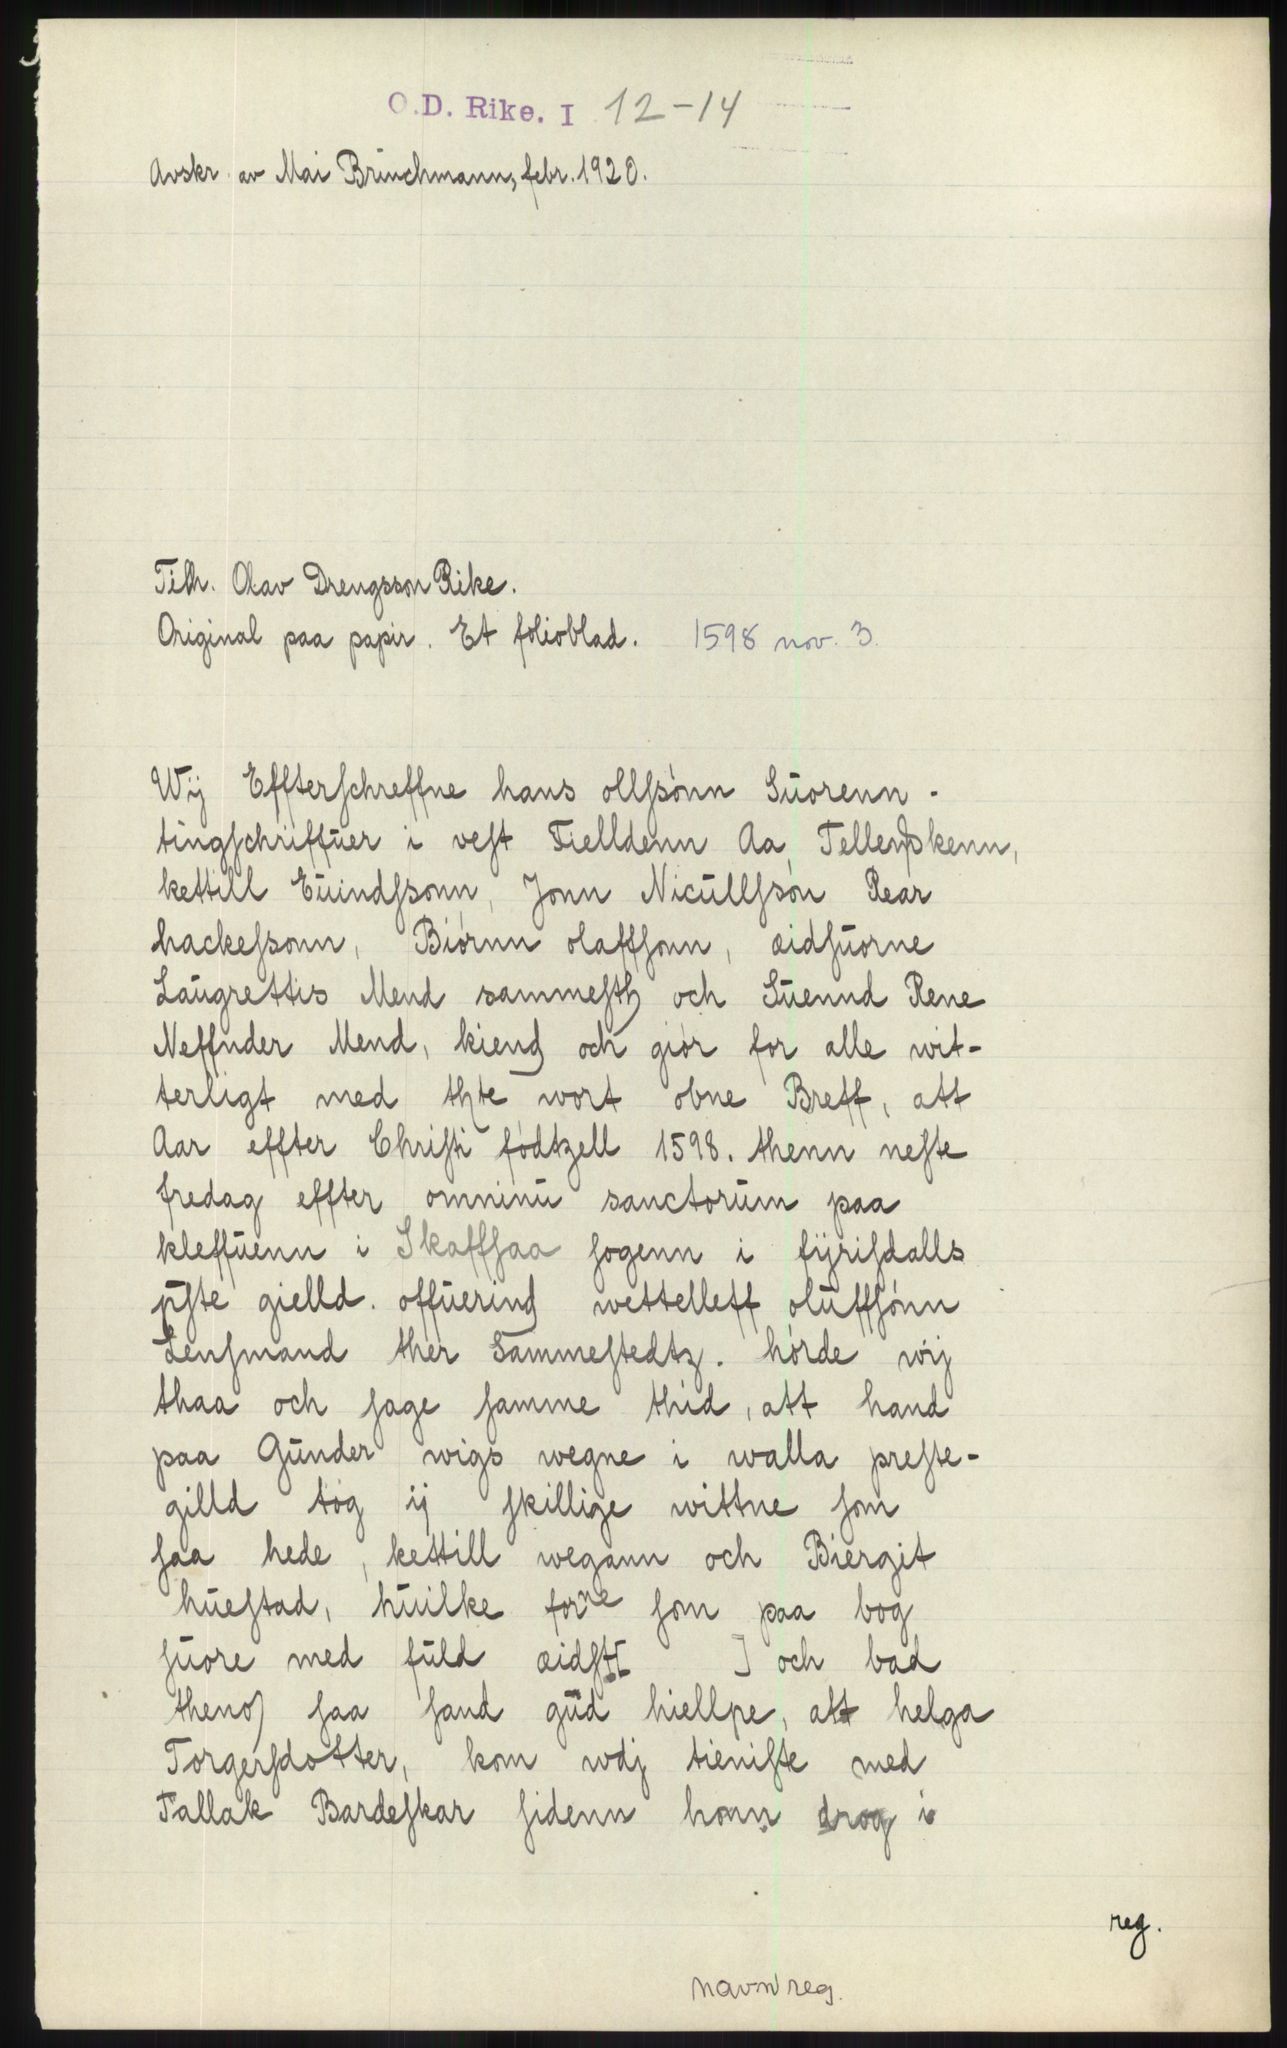 O.D. Rike. I 12-14
Avskr. av Mai Brünchmann, febr. 1920.
Tilh. Olav Drengsson Rike.
Original paa papir. Et folioblad. 1598 nov. 3.
Wij Effterſchreffne hans ollſsónn Süorenn-
tingſchriffüer i veſt Fielldenn Aa Tellemſkenn,
kettill Eüindſsonn, Jonn Nicüllſsón Rear
hackeſsonn, Biórnn olaffſonn, æidſüorne
Laügrettis Mend sammeſtz och Süennd Rene
Neffnder Mend, kiend och giór for alle wit-
terligt med thte wort obne Breff, att
Aar effter Chriſti fódtzell 1598. thenn neſte
fredag effter omninü sanctorüm paa
kleffüenn i Skaffſaa ſogenn i fijriſdalls
pſte gielld. offüerind wettelleff olüffſónn
Lenſmand ther Sammeſtedtz. hórde wij
thaa och ſage ſamme thid, att hand
paa Günder wigs wegne i walla preſte-
gilld tog ij ſkillige wittne ſom
ſaa hede, kettill wegann och Biergit
hüeſtad, hüilke forne ſom paa bog
ſüore med füld æidſtt[ ] och bad
thenom ſaa ſand güd hiellpe, att helga
Torgerſdotter, kom wdj tieniſte med
Tallak Bardeſkar ſidenn honn drog i
reg.
navnreg.